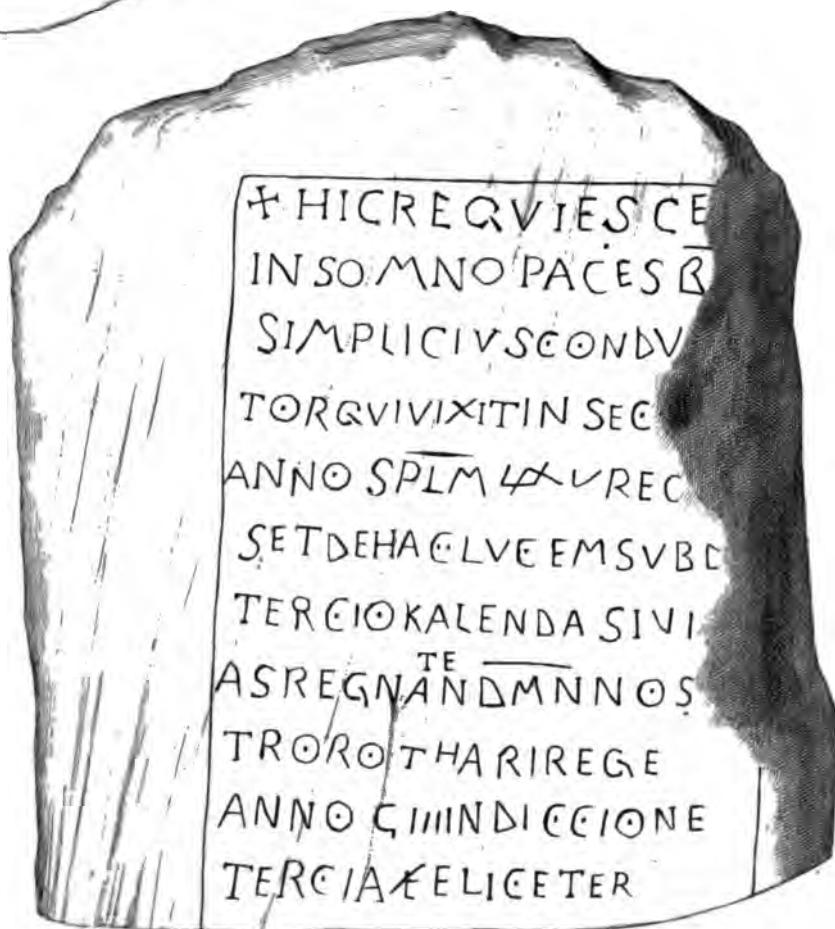 + HICREQVIESCE
INSOMNOPACESB̅
SIMPLICIVSCONDV
TORQVIVIXITINSEC
ANNOSPLM̅ LXXVREC
SETDEHACLVCEMSVBD
TERCIOKALENDASIVI
ASREGNANTEDM̅NNOS
TROROTHARIREGE
ANNO GIIIINDICCIONE
TERCIAFELICETER